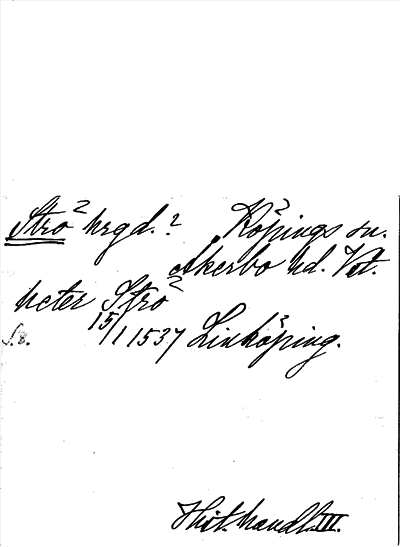 Strö hrgd.? Köpings sn.
Åkerbo hd. Vstl.
heter Strö
S.8. 15/1 1537 Linköping.
Hist. handl. III.